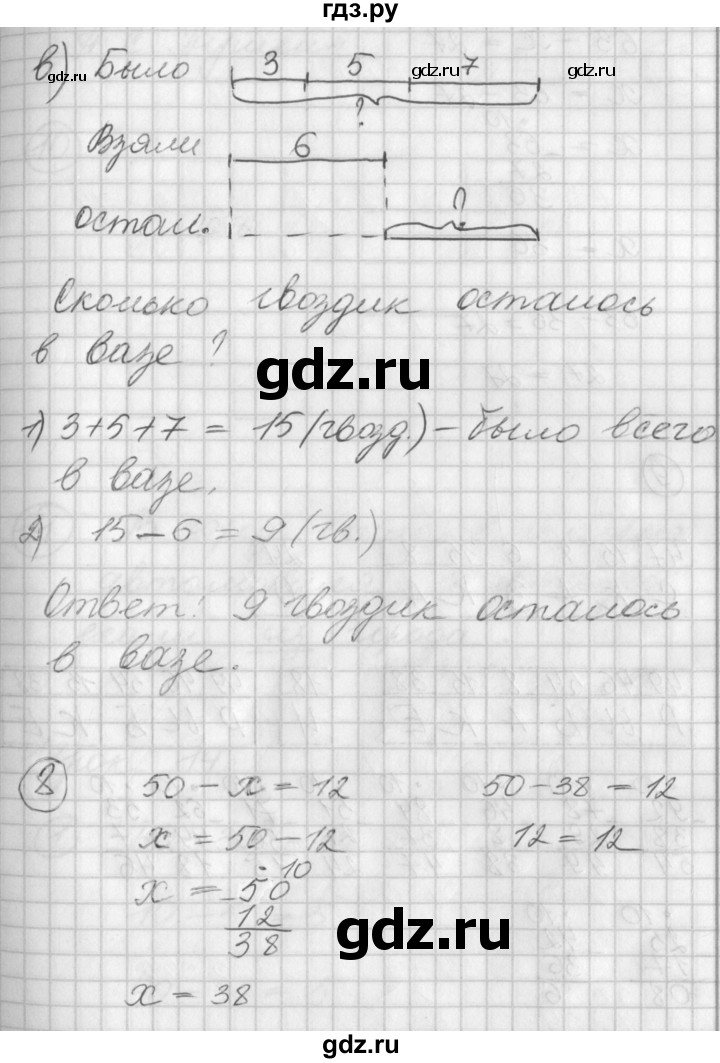 гдз.ру
в) Было 3 5 7
?
Взяли 6
остал. ?
Сколько гвоздик осталось
в вазе?
gdz.ru
1) 3+5+7 = 15 (гвозд.) – было всего
в вазе.
2) 15 – 6 = 9 (гв.)
Ответ: 9 гвоздик осталось
в вазе.
8 50 – x = 12 50 – 38 = 12
x = 50 – 12 12 = 12
·10
x = –50
12
38
gdz.ru
x = 38
gdz.ru gdz.ru gdz.ru
gdz.ru